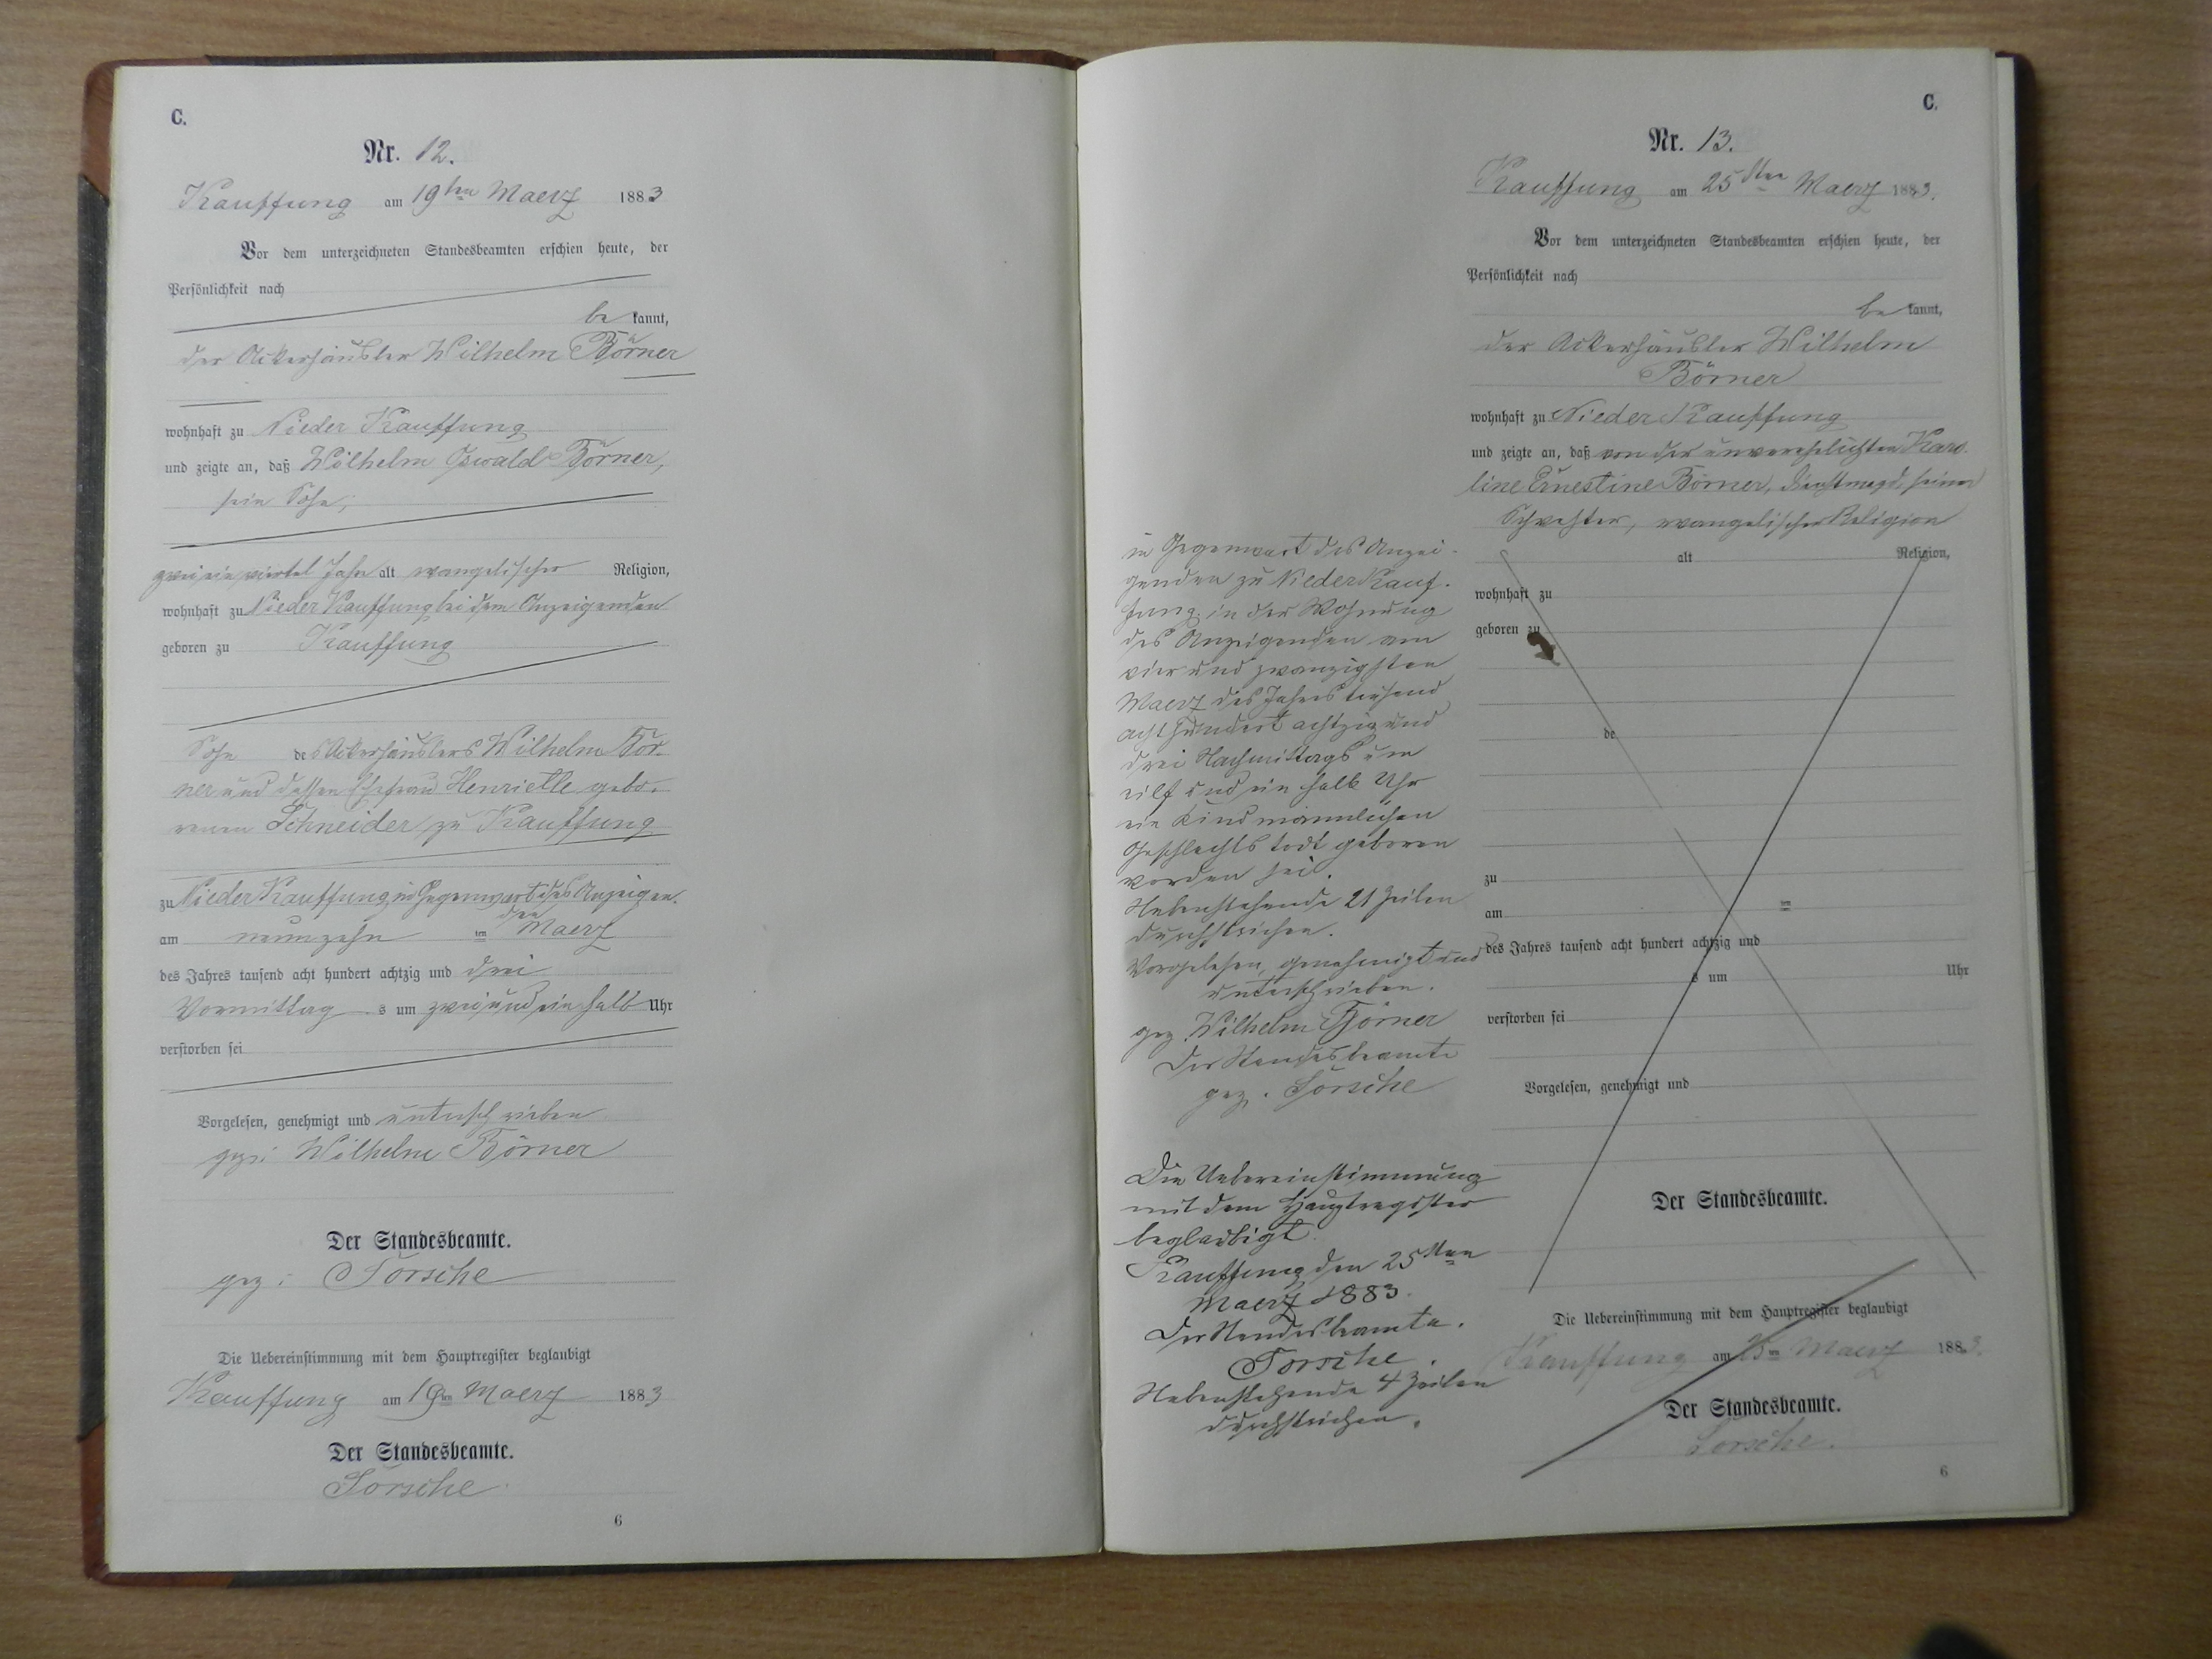 C.
Nr. 12.
Kauffung am 19ten Maerz 1883
Vor dem unterzeichneten Standesbeamten erschien heute, der
Persönlichkeit nach
be kannt,
der Ackerhäusler Wilhelm Börner
wohnhaft zu Nieder Kauffung
und zeigte an, daß Wilhelm Oswald Börner,
sein Sohn,
zwei ein viertel Jahr alt evangelischer Religion,
wohnhaft zu Nieder Kauffung bei dem Anzeigenden
geboren zu Kauffung
Sohn des Ackerhäuslers Wilhelm Bör-
ner und dessen Ehefrau Henriette gebo-
renen Schneider zu Kauffung
zu Nieder Kauffung in Gegenwart des Anzeigen-
den
am neunzehn ten Maerz
des Jahres tausend acht hundert achtzig und drei
Vormittag s um zwei und ein halb Uhr
verstorben sei
Vorgelesen, genehmigt und unterschrieben
gez: Wilhelm Börner
Der Standesbeamte.
gez:
Die Uebereinstimmung mit dem Hauptregister beglaubigt
Kauffung am 19ten Maerz 1883
Der Standesbeamte.
6
C.
Nr. 13.
Kauffung am 25sten Maerz 1883.
Vor dem unterzeichneten Standesbeamten erschien heute, der
Persönlichkeit nach
be kannt,
der Ackerhäusler Wilhelm
Börner
wohnhaft zu Nieder Kauffung
und zeigte an, daß von der unverehelichten Karo-
line Ernestine Börner, Dienstmagd, seiner
Schwester, evangelischer Religion
alt Religion,
wohnhaft zu
geboren zu
de
zu
am ten
des Jahres tausend acht hundert achtzig und
s um Uhr
verstorben sei
Vorgelesen, genehmigt und
Der Standesbeamte.
Die Uebereinstimmung mit dem Hauptregister beglaubigt
Kauffung am 25ten Maerz 1883.
Der Standesbeamte.
6
in Gegenwart des Anzei-
genden zu Nieder Kauf-
fung in der Wohnung
des Anzeigenden am
vier und zwanzigsten
Maerz des Jahres tausend
acht hundert achtzig und
drei Nachmittags um
eilf und ein halb Uhr
ein Kind männlichen
Geschlechts todt geboren
worden sei.
Nebenstehende 21 Zeilen
durchstrichen.
Vorgelesen, genehmigt und
unterschrieben.
gez. Wilhelm Börner
Der Standesbeamte
gez.
Die Uebereinstimmung
mit dem Hauptregister
beglaubigt.
Kauffung den 25sten
Maerz 1883.
Der Standesbeamte.
Nebenstehende 4 Zeilen
durchstrichen.